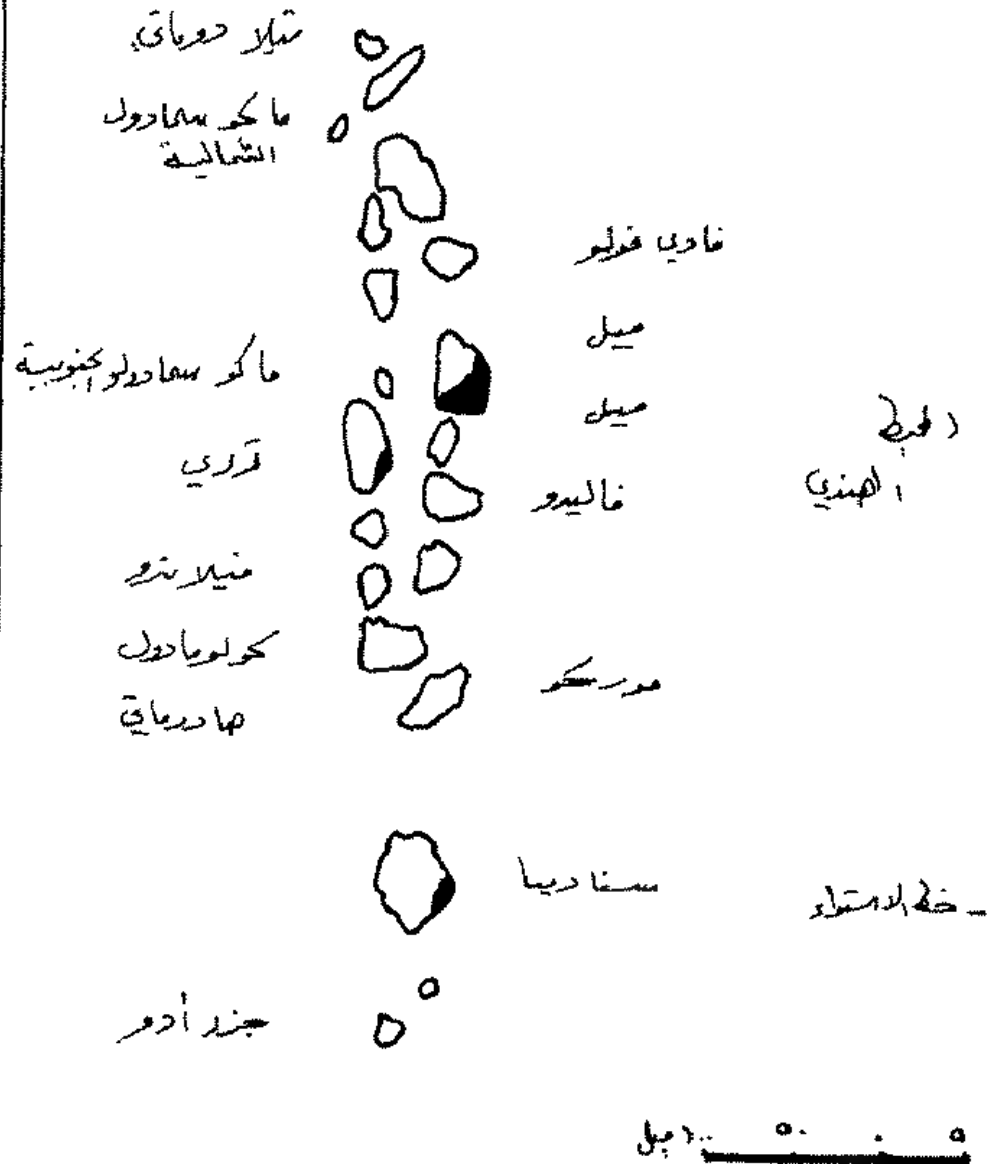 تيلا دوماتي
ماكو سمادول
الشمالية
فادي فولو
ميل
ماكو سمادولو الجنوبية
ميل
المحيط
الهندي
أري
فاليدو
نيلاندو
كولومادول
موركو
هادرماتي
سفاديبا
خط الاستواء
جزر أدو
٥ ٠ ٥٠ ١٠٠ ميل